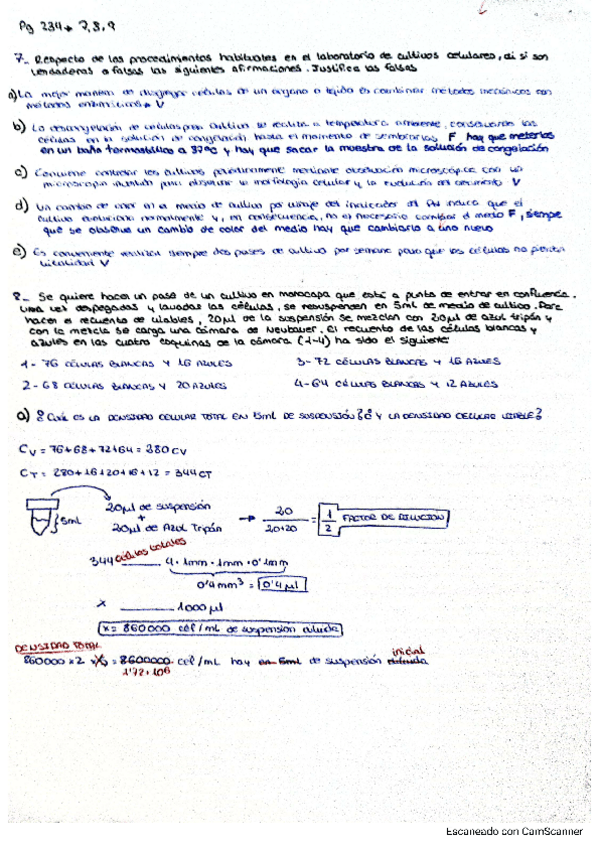 Pg 234 → 7, 8, 9
7- Respecto de los procedimientos habituales en el laboratorio de cultivos celulares, di si son
verdaderas o falsas las siguientes afirmaciones. Justifica las falsas
a) La mejor manera de disgregar células de un órgano o tejido es combinar métodos mecánicos con
métodos enzimáticos V
b) La descongelación de células para cultivo se realiza a temperatura ambiente, conservando las
células en la solución de congelación hasta el momento de sembrarlas. F hay que meterlas
en un baño termostático a 37ºC y hay que sacar la muestra de la solución de congelación
c) Conviene controlar los cultivos periódicamente mediante observación microscópica con un
microscopio invertido para observar la morfología celular y la evolución del crecimiento V
d) Un cambio de color en el medio de cultivo por viraje del indicador de pH indica que el
cultivo evoluciona normalmente y, en consecuencia, no es necesario cambiar el medio F, siempre
que se observe un cambio de color del medio hay que cambiarlo a uno nuevo
e) Es conveniente realizar siempre dos pases de cultivo por semana para que las células no pierdan
vitalidad V
8- Se quiere hacer un pase de un cultivo en monocapa que está a punto de entrar en confluencia.
Una vez despegadas y lavadas las células, se resuspenden en 5ml de medio de cultivo. Para
hacer el recuento de viables, 20μl de la suspensión se mezclan con 20μl de azul tripán y
con la mezcla se carga una cámara de Neubauer. El recuento de las células blancas y
azules en las cuatro esquinas de la cámara (1-4) ha sido el siguiente:
1- 76 CÉLULAS BLANCAS Y 16 AZULES 3- 72 CÉLULAS BLANCAS Y 16 AZULES
2- 68 CÉLULAS BLANCAS Y 20 AZULES 4- 64 CÉLULAS BLANCAS Y 12 AZULES
a) ¿Cuál ES LA DENSIDAD CELULAR TOTAL EN 5ml DE SUSPENSIÓN? ¿Y LA DENSIDAD CELULAR VIABLE?
Cv = 76+68+72+64 = 280 CV
CT = 280+16+20+16+12 = 344 CT
5mL
20μl de suspensión
+
20μl de Azul Tripán
→ 20 / 20+20 = 1/2 FACTOR DE DILUCIÓN
344 células totales 4 · 1mm · 1mm · 0'1mm
0'4mm³ = 0'4 μl
X 1000 μl
X = 860000 cél/mL de suspension diluida
DENSIDAD TOTAL
860000 × 2 = 8600000 cél/mL hay en 5ml de suspensión inicial
1'72 · 10⁶
Escaneado con CamScanner